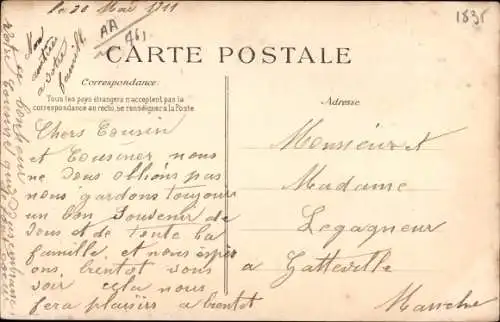 le 20 Mai 1911
AA
461
1835
Non
entrée
a votre
famille
CARTE POSTALE
Correspondance
Tous les pays étrangers n'acceptent pas la
correspondance au recto, se renseigner à la Poste
Adresse
Chers Cousin
et Cousiner nous
ne vous oblions pas
nous gardons toujour
un bon Souvenir de
vous et de toute la
famille et nous éspér
ons bientot vous
voir cela nous
fera plaisirs a bientot
Monsieur et
Madame
Legagneur
a Gatteville
Manche